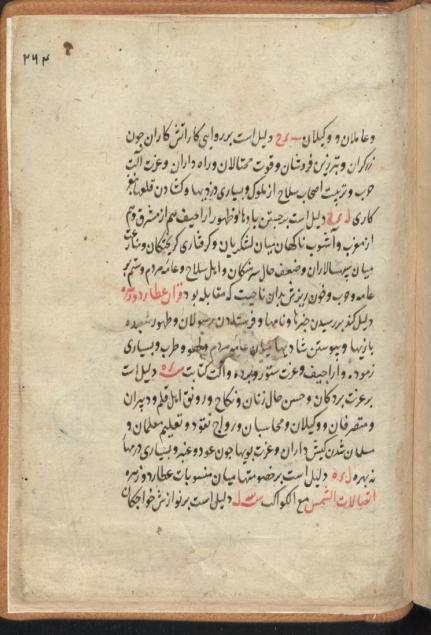 ۲۶۴
و عاملان و وکیلان دلیل است بر روایی کار آتش کاران چون
زرکران و فروشان و قوت محتالان و راه داران و عزت آلت
حرب و تربیت اصحاب سلاح از ملوک و بسیاری دزدیها و کشادن
کاری دلیل است بر جستن بادها و ظهور اراجیف هم از مشرق و هم
از مغرب و آشوب ناکهان میان لشکریان و کرفتاری کریختکان و
میان سپهسالاران و ضعف حال سرهنکان و اهل سلاح و عامه مردم و ستم بر
عامه و حرب و خون ریزش بدان ناحیت که مقابله بود قران عطارد و زهره
دلیل کند بر رسیدن خبرها و نامها و فرستادن رسولان و ظهور
بازیها و پیوستن شادیها میان عامه مردم و لهو و طرب و بسیاری
و اراجیف و عزت ستور و برده و آلت کتابت دلیل است
بر عزت بردکان و حسن حال زنان و نکاح و رونق اهل قلم و دبیران
و متصرفان و وکیلان و محاسبان و رواج نقود و تعلیم معلمان و
مسلمان شدن کیش داران و عزت بویها چون عود و عنبر و بسیاری درمها
دلیل است بر خصومتها میان منسوبات عطارد و زهره
اتصالات الشمس مع الکواکب دلیل است بر نوازش خواجکان